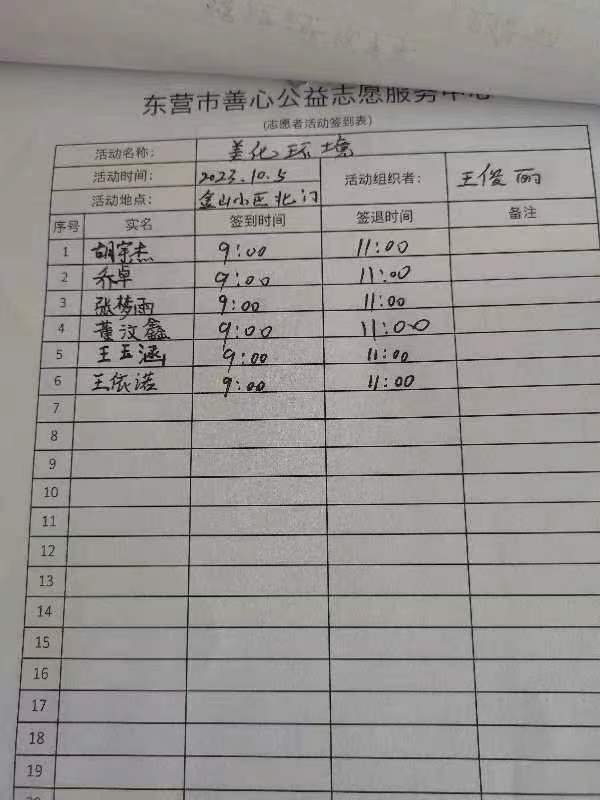 东营市善心公益志愿服务中心
(志愿者活动签到表)
活动名称： 美化环境
活动时间： 2023.10.5 活动组织者： 王俊丽
活动地点： 金山小区北门
序号 实名 签到时间 签退时间 备注
1 胡宗杰 9:00 11:00
2 乔卓 9:00 11:00
3 张梦雨 9:00 11:00
4 董汶鑫 9:00 11:00
5 王玉涵 9:00 11:00
6 王依诺 9:00 11:00
7
8
9
10
11
12
13
14
15
16
17
18
19